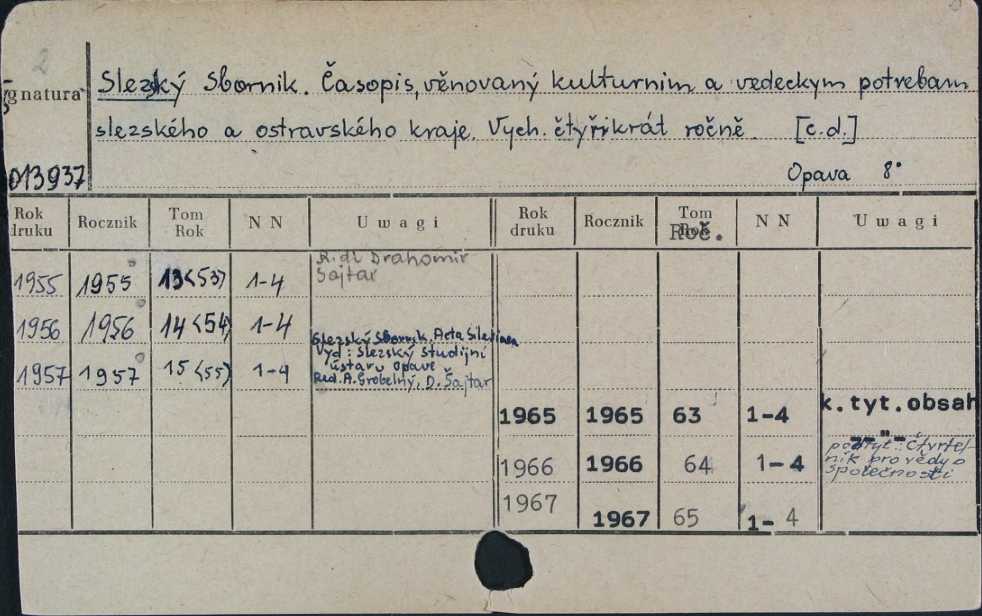 2
Slezský Sbornik. Časopis, věnovaný kulturnim a vedeckym potrebam
gnatura
slezského a ostravského kraje. Vych. čtyřikrát ročně. [c.d.]
013937
Opava 8°
Rok druku Rocznik Tom Rok N N Uwagi Rok druku Rocznik Tom Roč. N N Uwagi
1955 1955 13<53) 1-4 R. dl Drahomir Šajtar
1956 1956 14<54) 1-4
Slezský Sbornik. Acta Silesiaca
Vyd: Slezský studijní
ústav v Opavě
1957 1957 15<55) 1-4 Red. A. Grobelný, D. Šajtar
1965 1965 63 1-4 k.tyt.obsah
1966 1966 64 1-4 -"-
podtyt: Čtvrtel-
ník pro vědy o
společnosti
1967 1967 65 1- 4